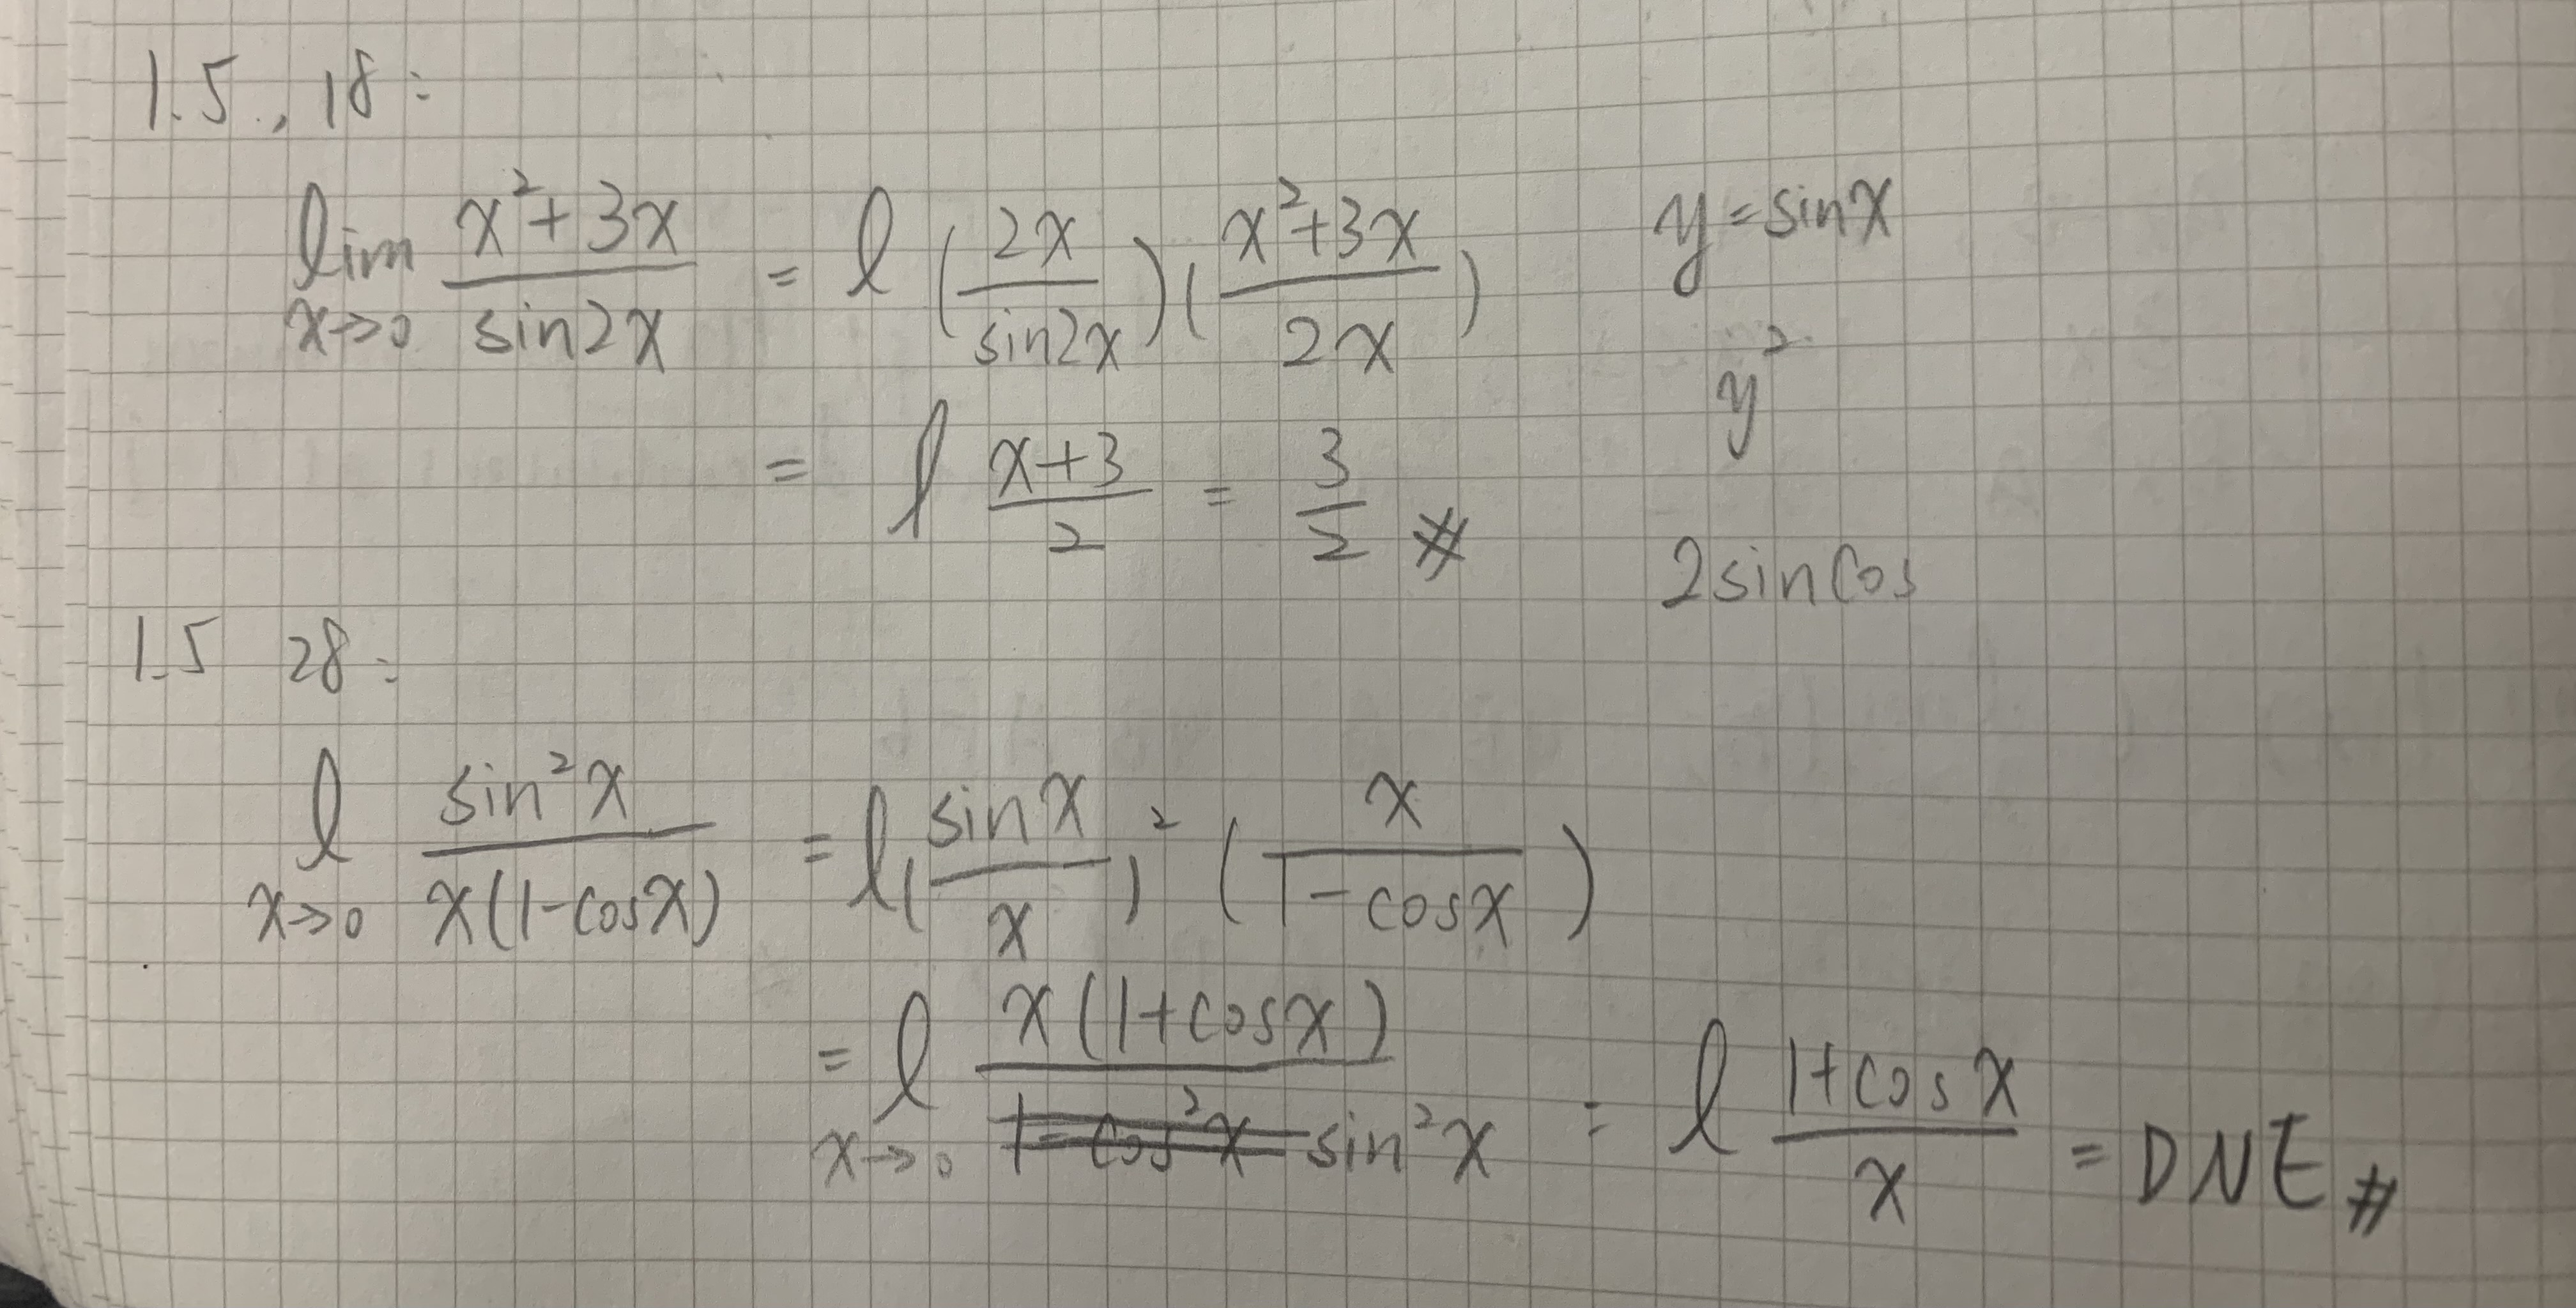 1.5., 18:
lim x→0 (x²+3x)/(sin2x) = l (2x/sin2x)((x²+3x)/2x)
= l (x+3)/2 = 3/2 #
y=sinx
y²
2sincos
1.5 28:
l x→0 sin²x/(x(1-cosx)) = l (sinx/x)² (x/(1-cosx))
= l x→0 x(1+cosx)/(1-cos²x sin²x) = l (1+cosx)/x = DNE #